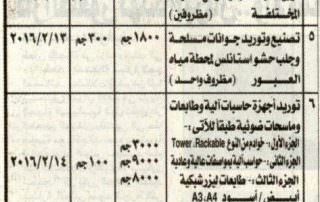 المختلفة (مظروفين)
٥ تصنيع وتوريد جوانات مسلحة ١٨٠٠ جم ٣٠٠ جم ٢٠١٦/٢/١٣
وجلب حشو استانلس لمحطة مياه
العبور (مظروف واحد)
٦ توريد أجهزة حاسبات آلية وطابعات
وماسحات ضوئية طبقاً للآتى:-
الجزء الأول:- خوادم من النوع Tower ,Rackable ٣٠٠٠ جم
الجزء الثانى:- حواسب آلية بمواصفات عالية وعادية ٩٠٠٠ جم ١٠٠ جم ٢٠١٦/٢/١٤
الجزء الثالث:- طابعات ليزر شبكية ٨٠٠٠ جم
أبيض / أسود A3،A4